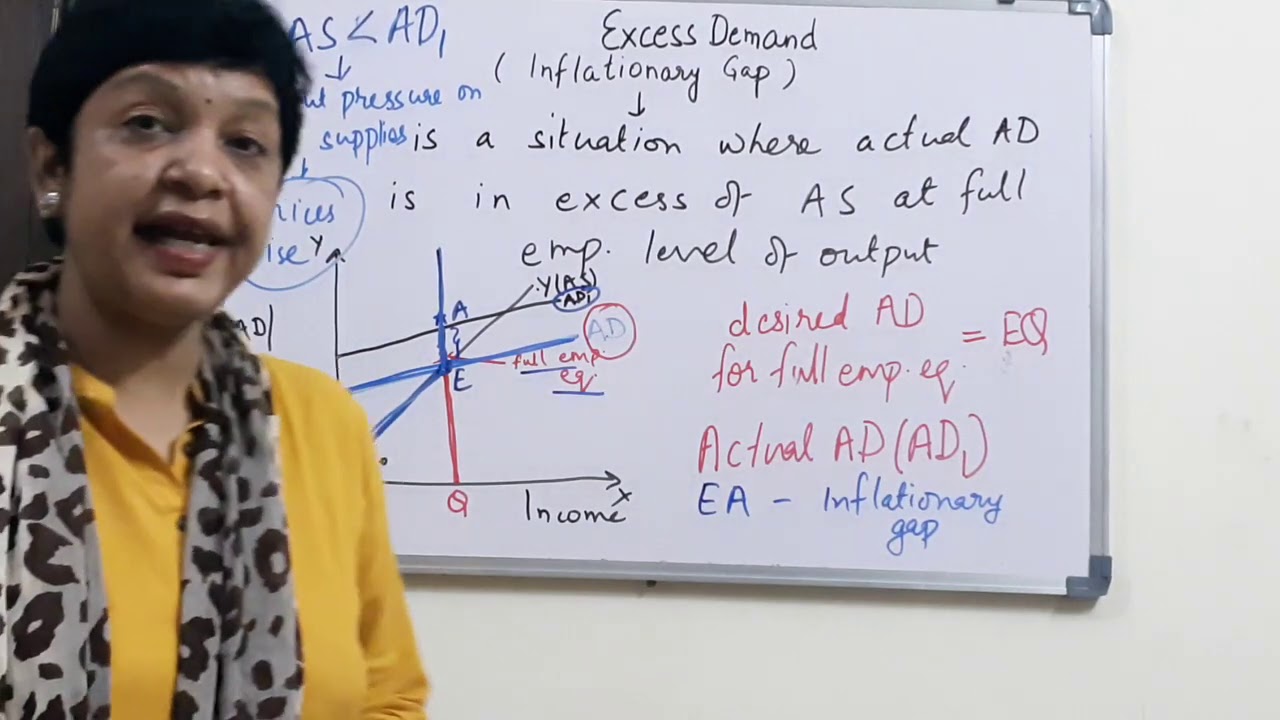 AS < AD₁
Excess Demand
( Inflationary Gap )
↓
↓
pressure on
supplies
is a situation where actual AD
is in excess of AS at full
emp. level of output
Y
Y(AS)
AD₁
A
AD
full emp.
eq.
E
desired AD
for full emp. eq. = EQ
Actual AD (AD₁)
EA - Inflationary
gap
Q
Income
X